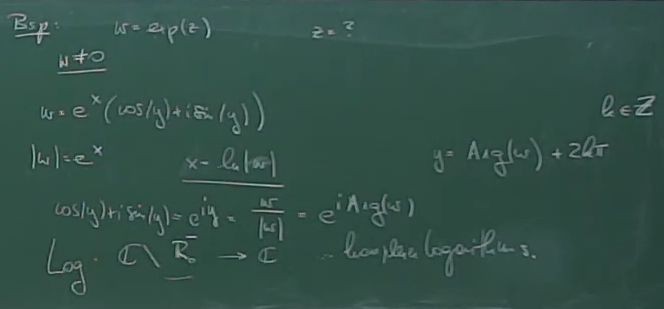 Bsp: w = exp(z) z = ?
w ≠ 0
w = e^x (cos(y) + i sin(y)) k ∈ ℤ
|w| = e^x x = ln|w| y = Arg(w) + 2kπ
cos(y) + i sin(y) = e^{iy} = w/|w| = e^{i Arg(w)}
Log: ℂ \ ℝ₀⁻ → ℂ .. komplexer Logarithmus.